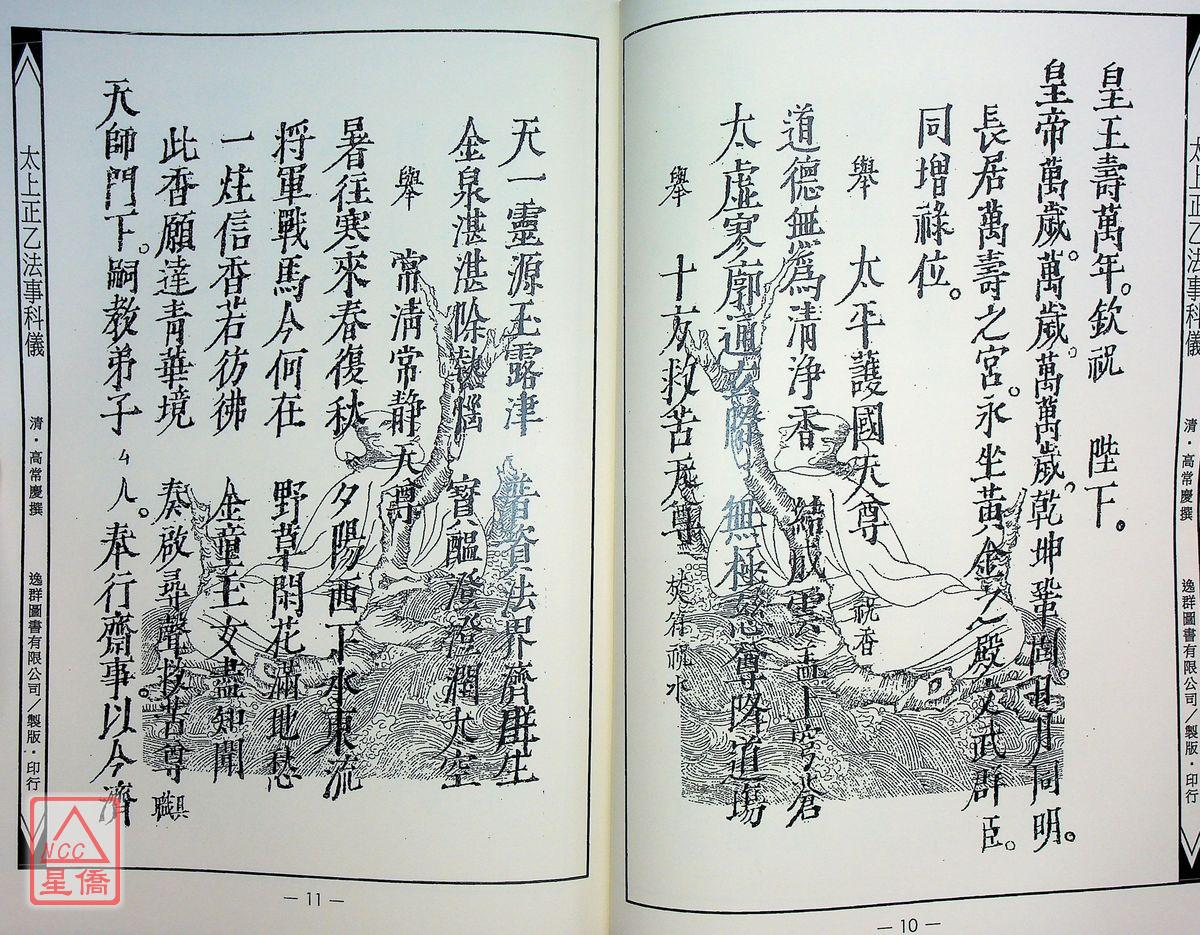 皇王壽萬年。欽祝　陛下。
皇帝萬歲。萬歲。萬萬歲。乾坤鞏固。日月同明。
長居萬壽之宮。永坐黃金之殿。文武群臣。
同增祿位。
舉　太平護國天尊　祝香
道德無為清淨香　結成雲蓋上穹蒼
太虛寥廓通玄隣　無極慈尊降道塲
舉　十方救苦天尊　焚符祝水
太上正乙法事科儀
清・高常慶撰
逸群圖書有限公司／製版・印行
— 10 —
天一靈源玉露津　普資法界濟群生
金泉湛湛除熱惱　寶醞澄澄潤太空
舉　常清常静天尊
暑往寒來春復秋　夕陽西下水東流
将軍戰馬今何在　野草閑花滿地愁
一炷信香若彷彿　金童玉女盡知聞
此香願達青華境　奏啟尋聲救苦尊　具職
天師門下。嗣教弟子厶人。奉行齋事。以今濟
太上正乙法事科儀
清・高常慶撰
逸群圖書有限公司／製版・印行
— 11 —
NCC
星僑